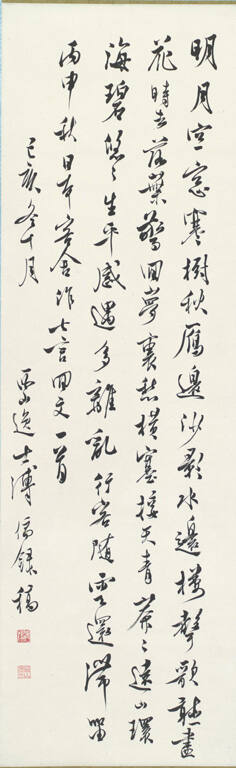 明月空窗寒樹秋雁邊沙影水邊樓聲歌聽盡
花時去落葉驚回夢裏愁橫塞接天青莽〻遠山環
海碧悠〻生平感遇多離亂行客隨雲還滯留
丙申秋日本客舍作七言回文一首
己亥冬十月
西山逸士溥儒錄稿